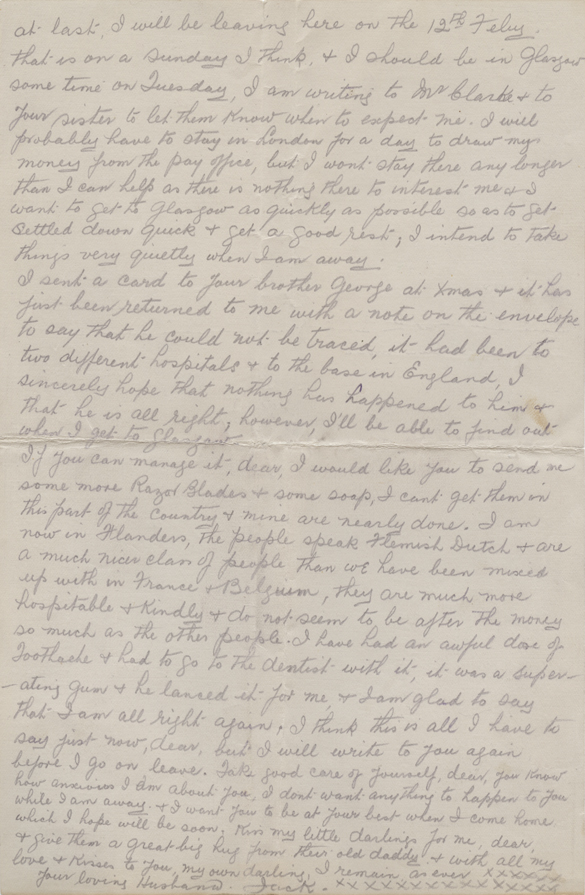 at last, I will be leaving here on the 12th Feby.
that is on a Sunday I think, & I should be in Glasgow
some time on Tuesday, I am writing to Mr Clark & to
Your sister to let them know when to expect me. I will
probably have to stay in London for a day to draw my
money from the pay office, but I wont stay there any longer
than I can help as there is nothing there to interest me & I
want to get to Glasgow as quickly as possible so as to get
settled down quick & get a good rest; I intend to take
things very quietly when I am away.
I sent a card to your brother George at Xmas & it has
just been returned to me with a note on the envelope
to say that he could not be traced, it had been to
two different hospitals & to the base in England, I
sincerely hope that nothing has happened to him &
that he is all right; however, I'll be able to find out
when I get to Glasgow
If you can manage it, dear, I would like you to send me
some more Razor Blades & some soap, I cant get them in
this part of the country & mine are nearly done. I am
now in Flanders, the people speak Flemish Dutch & are
a much nicer class of people than we have been mixed
up with in France & Belgium, they are much more
hospitable & kindly & do not seem to be after the money
so much as the other people. I have had an awful dose of
Toothache & had to go to the dentist with it, it was a super-
-ating gum & he lanced it for me, & I am glad to say
that I am all right again; I think this is all I have to
say just now, dear, but I will write to you again
before I go on leave. Take good care of yourself, dear, you know
how anxious I am about you, I dont want anything to happen to you
while I am away. & I want you to be at your best when I come home
which I hope will be soon. Kiss my little darlings for me, dear,
& give them a great big hug from their old daddy & with all my
love & Kisses to you, my own darling, I remain as ever xxxxxxx
Your loving Husband. Jack. xxxxxxxxxxxxx